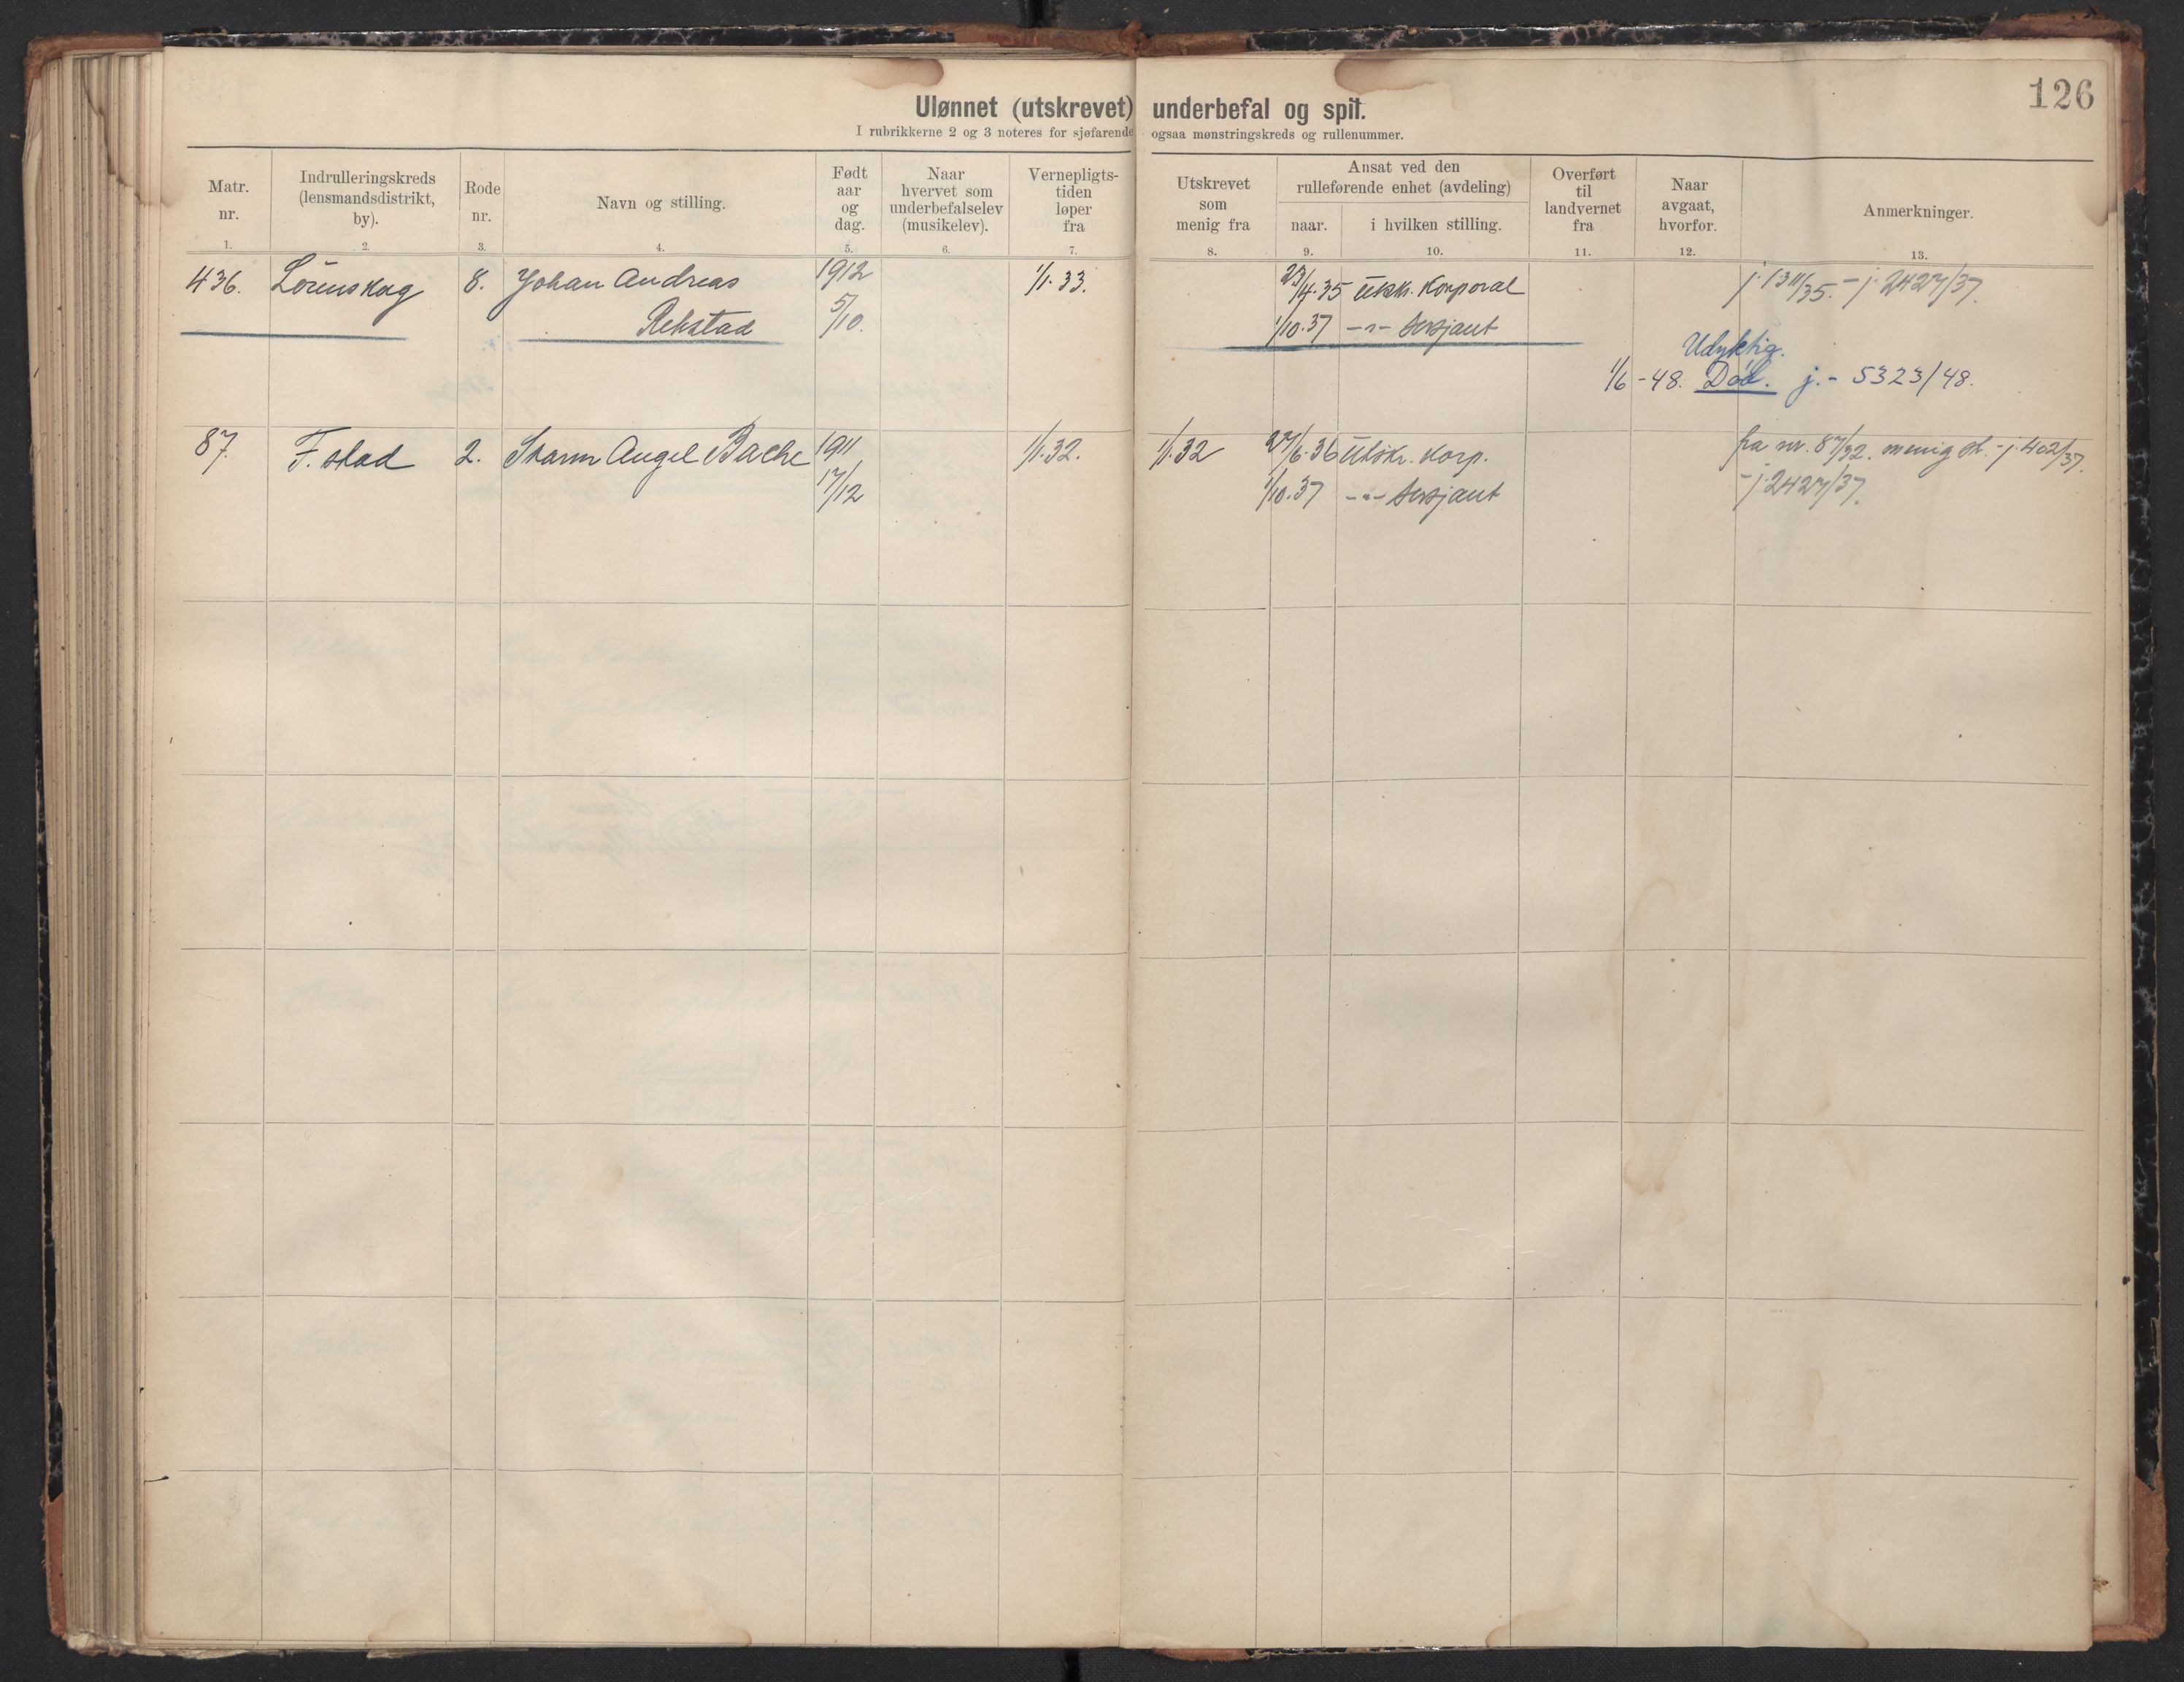 126
Ulønnet (utskrevet) underbefal og spil.
I rubrikkerne 2 og 3 noteres for sjøfarende ogsaa mønstringskreds og rullenummer.
Matr. nr.
Indrulleringskreds (lensmandsdistrikt, by).
Rode nr.
Navn og stilling.
Født aar og dag.
Naar hvervet som underbefalselev (musikelev).
Vernepligts-tiden løper fra
Utskrevet som menig fra
Ansat ved den rulleførende enhet (avdeling)
naar.
i hvilken stilling.
Overført til landvernet fra
Naar avgaat, hvorfor.
Anmerkninger.
1. 2. 3. 4. 5. 6. 7. 8. 9. 10. 11. 12. 13.
436. Lørenskog 8. Johan Andreas 1912 1/1.33. 23/4.35 utskr. Korporal j. 1311/35. - j. 2427/37.
Rekstad 5/10. 1/10.37 -"- Sersjant
Udyktig.
1/6-48. Død. j.- 5323/48.
87. F.stad 2. Angel Bache 1911 1/1.32. 1/1.32 27/6.36 Utskr. Korp. fra nr. 87/32. menig - j. 402/37.
17/12 1/10.37 -"- Sersjant - j. 2427/37.